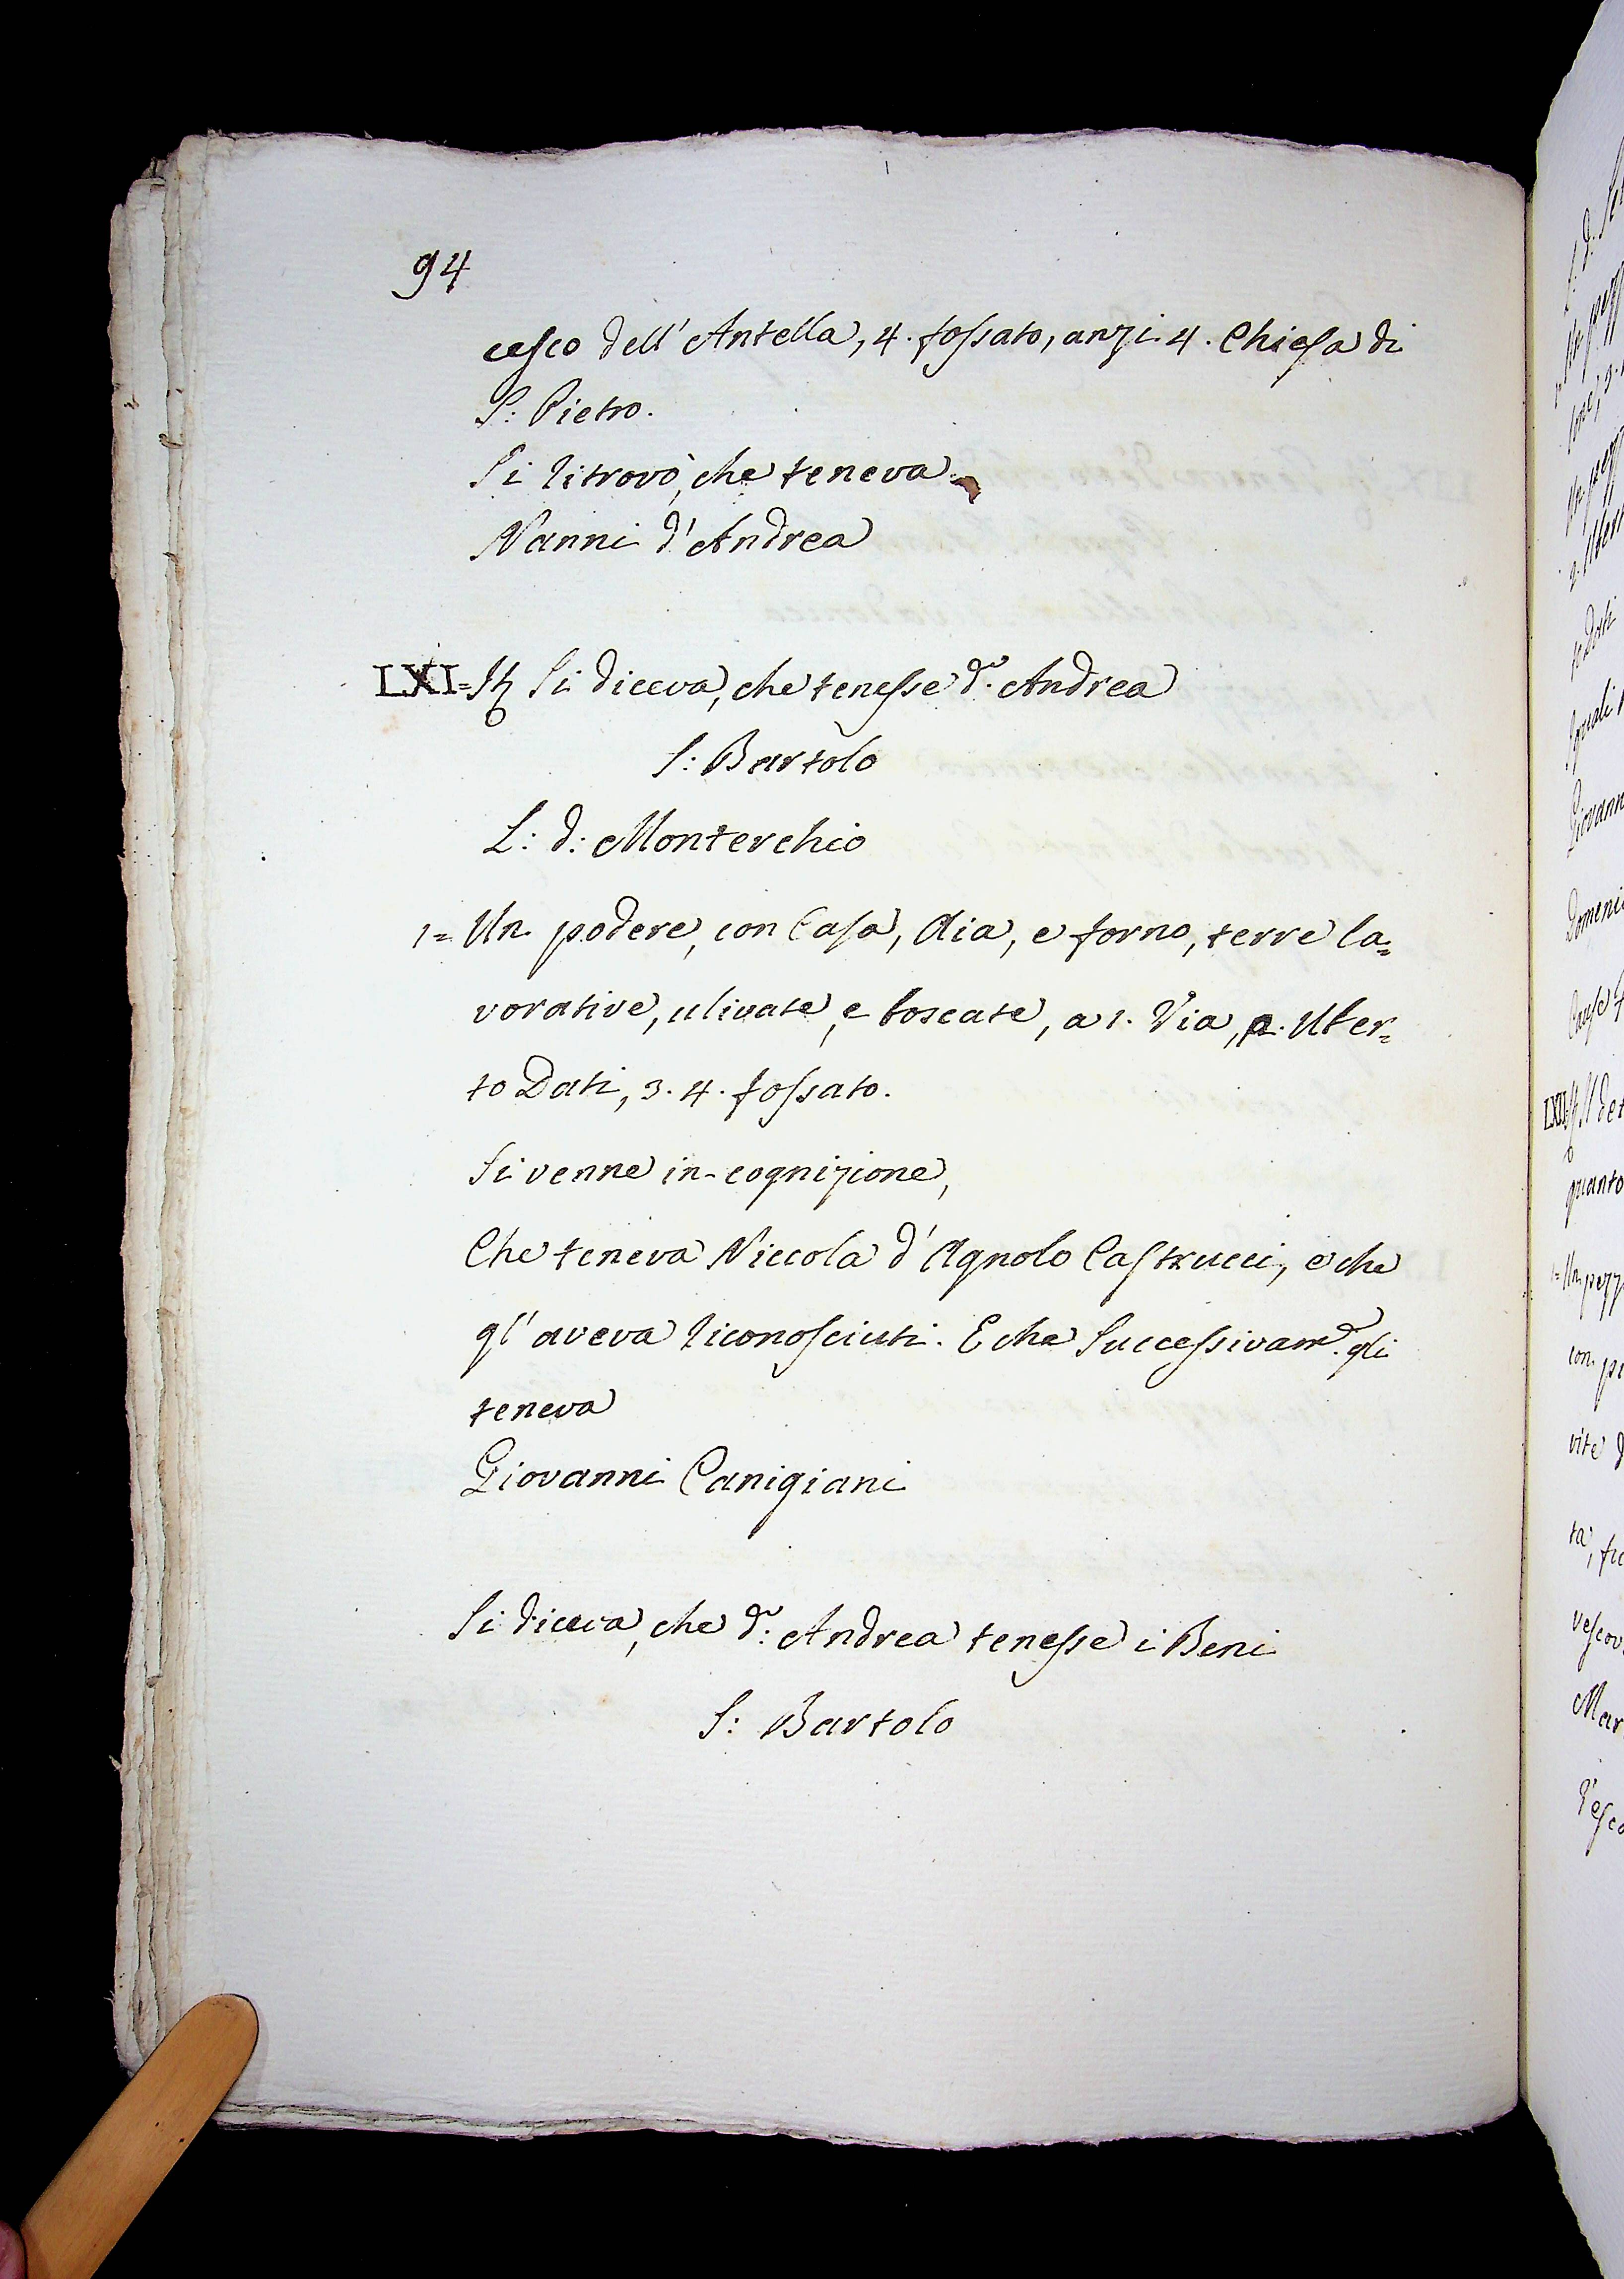 94
cesco dell' Antella, 4. fossato, anzi 4. Chiesa di
S: Pietro.
Si ritrovò, che teneva
Nanni d'Andrea
LXI= It Si diceva, che tenesse d.º Andrea
S: Bartolo
L: d: Monterchio
1= Un podere, con Casa, Aia, e forno, terre la=
vorative, ulivate, e boscate, a 1. Via, 2. Uber=
to Dati, 3. 4. fossato.
Si venne in cognizione,
Che teneva Niccola d'Agnolo Castrucci, e che
gl'aveva riconosciuti. E che Successivam.e gli
teneva
Giovanni Canigiani
Si diceva, che d.º: Andrea tenesse i Beni
S: Bartolo